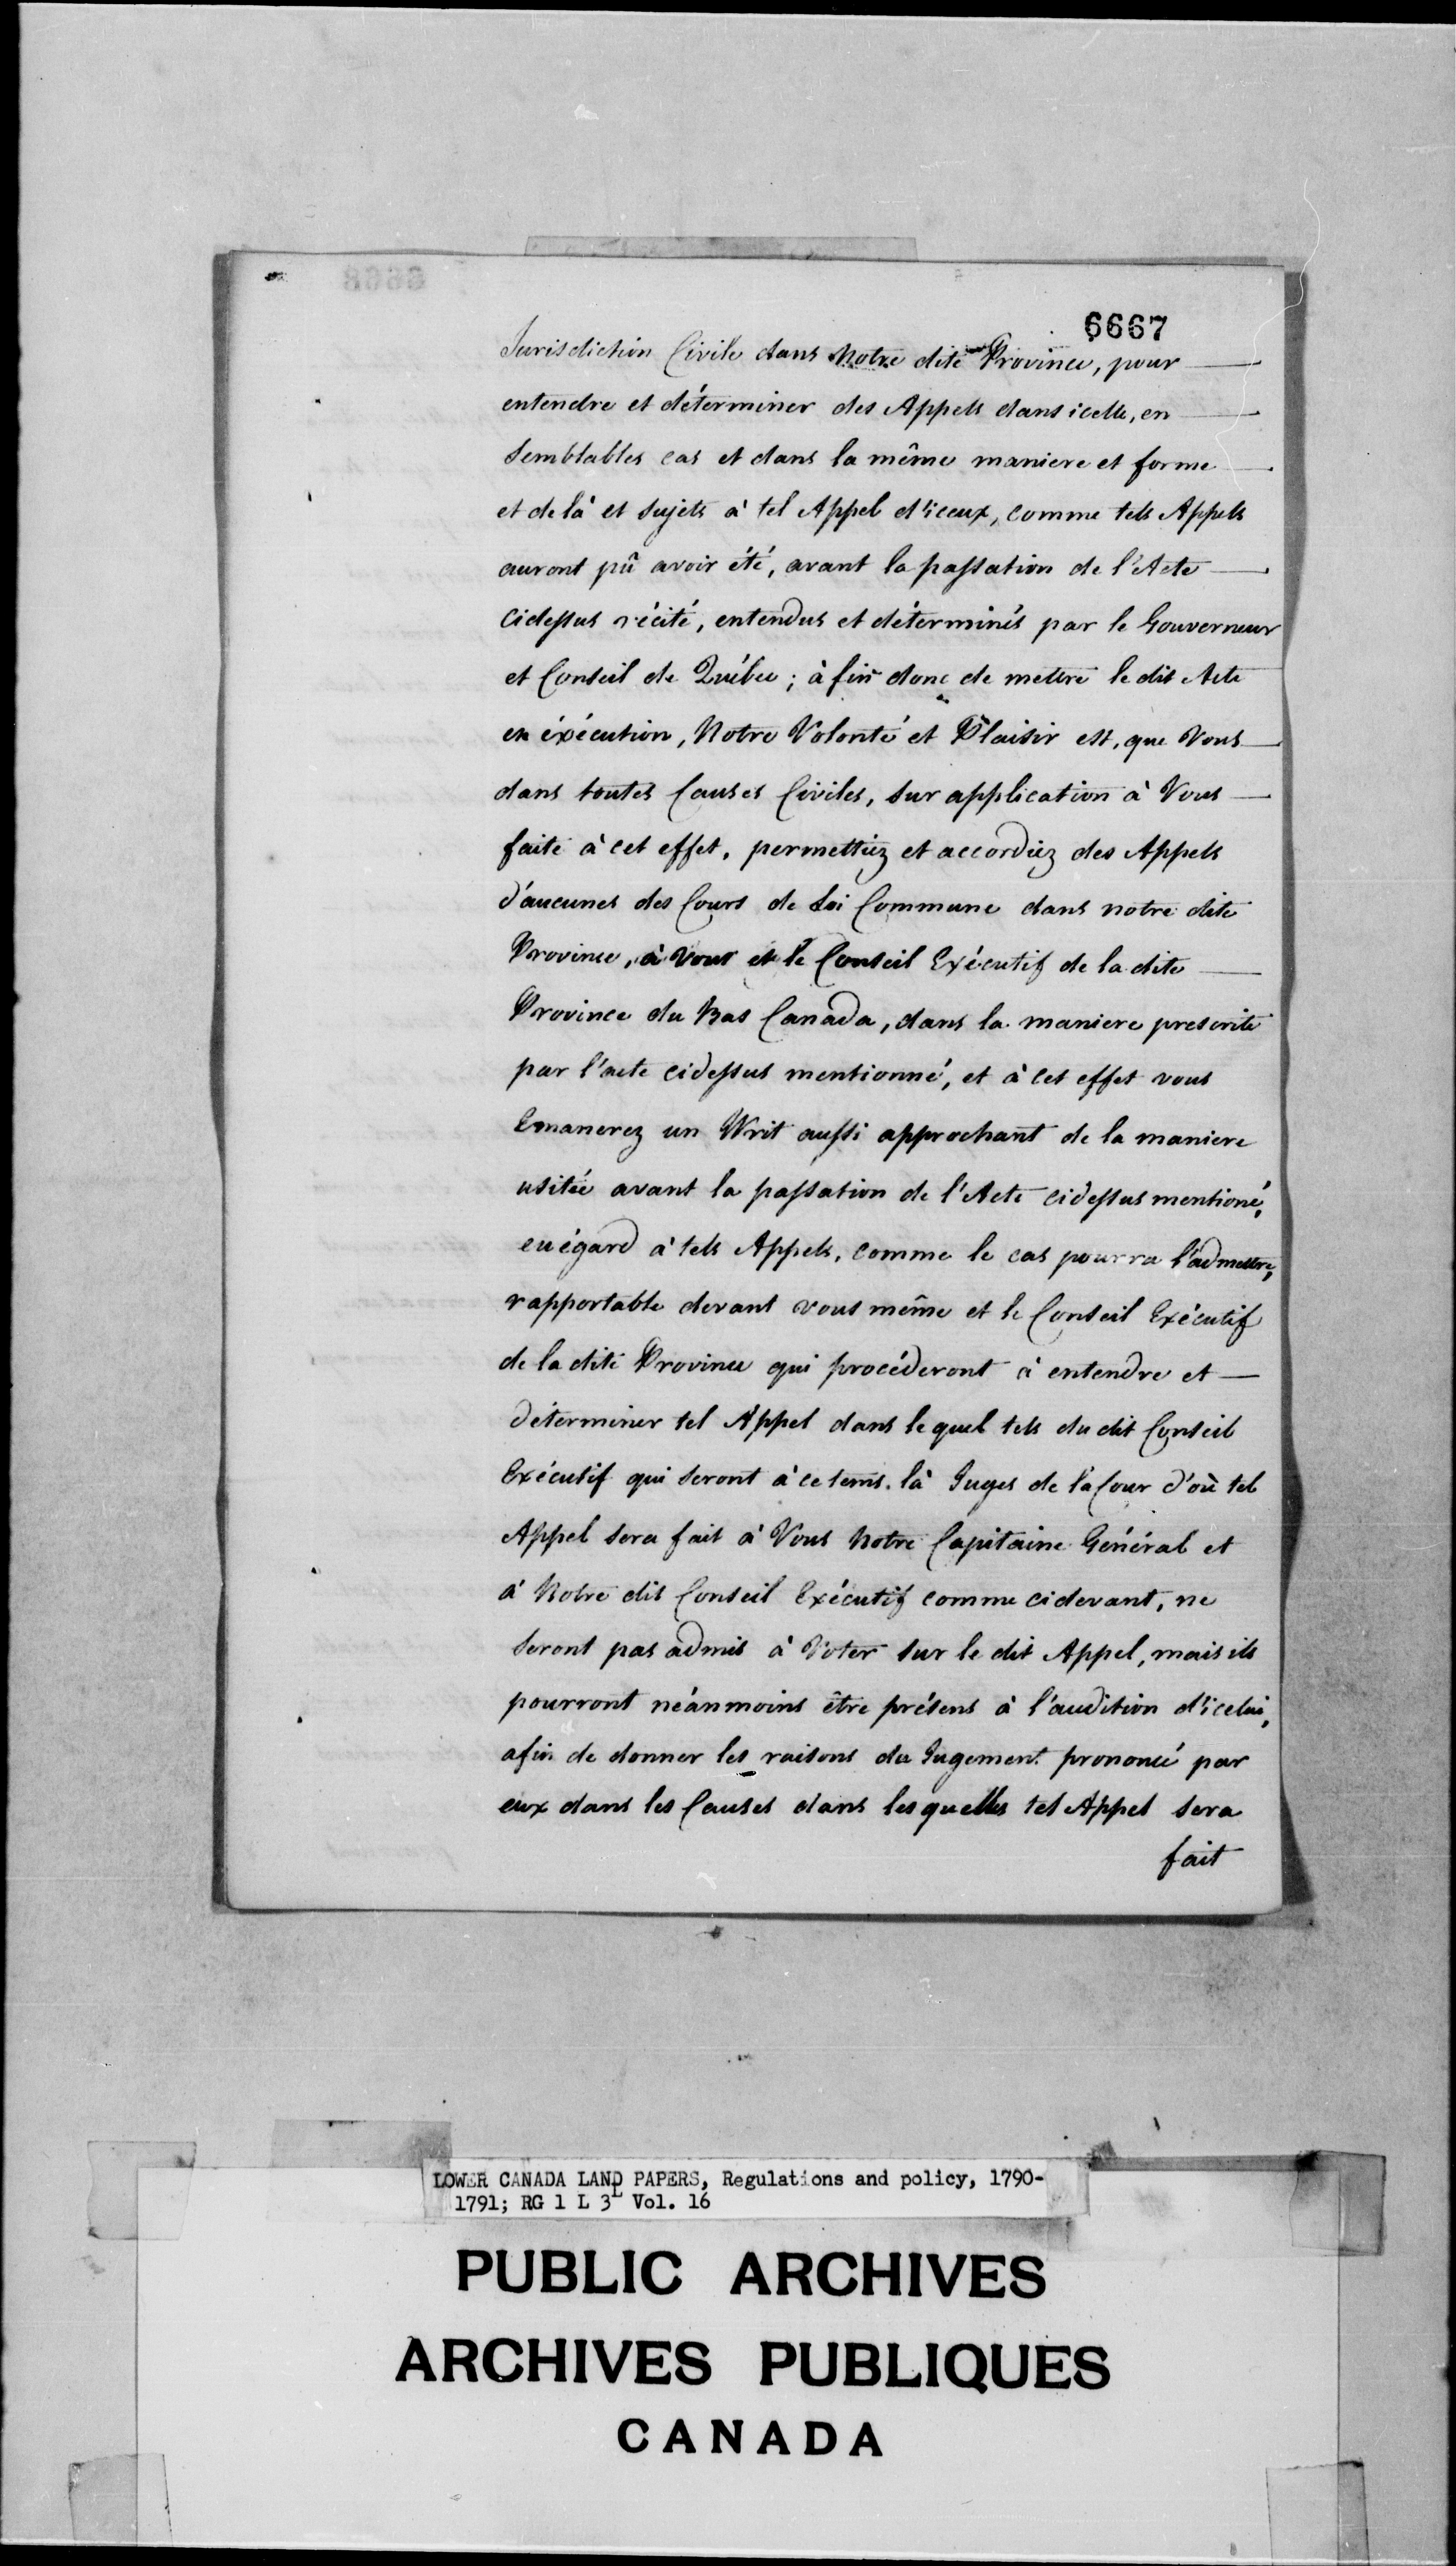 6667
Jurisdiction Civile dans Notre dite Province, pour
entendre et déterminer des Appels dans icelle, en
Semblables cas et dans la même maniere et forme
et de là et sujets à tel Appel d'iceux, comme tels Appels
auront pû avoir été, avant la passation de l'Acte
Cidessus récité, entendus et déterminés par le Gouverneur
et Conseil de Québec ; à fin donc de mettre le dit Acte
en éxécution, Notre Volonté et Plaisir est, que Vous
dans toutes Causes Civiles, sur application à Vous
faite à cet effet, permettiez et accordiez des Appels
d'aucunes des Cours de Loi Commune dans notre dite
Province, à Vous et le Conseil Exécutif de la dite
Province du Bas Canada, dans la maniere prescrite
par l'acte cidessus mentionné, et à cet effet vous
Emanerez un Writ aussi approchant de la maniere
usitée avant la passation de l'Acte cidessus mentioné,
eu égard à tels Appels, comme le cas pourra l'admettre,
rapportable devant vous même et le Conseil Exécutif
de la dite Province qui procéderont à entendre et
déterminer tel Appel dans le quel tels du dit Conseil
Exécutif qui seront à ce tems là Juges de la Cour d'où tel
Appel sera fait à Vous Notre Capitaine Général et
à Notre dit Conseil Exécutif comme cidevant, ne
seront pas admis à Voter sur le dit Appel, mais ils
pourront néanmoins être présens à l'audition d'icelui,
afin de donner les raisons du Jugement prononcé par
eux dans les Causes dans les quelles tel Appel sera
fait
LOWER CANADA LAND PAPERS, Regulations and policy, 1790-
1791; RG 1 L 3L Vol. 16
PUBLIC ARCHIVES
ARCHIVES PUBLIQUES
CANADA